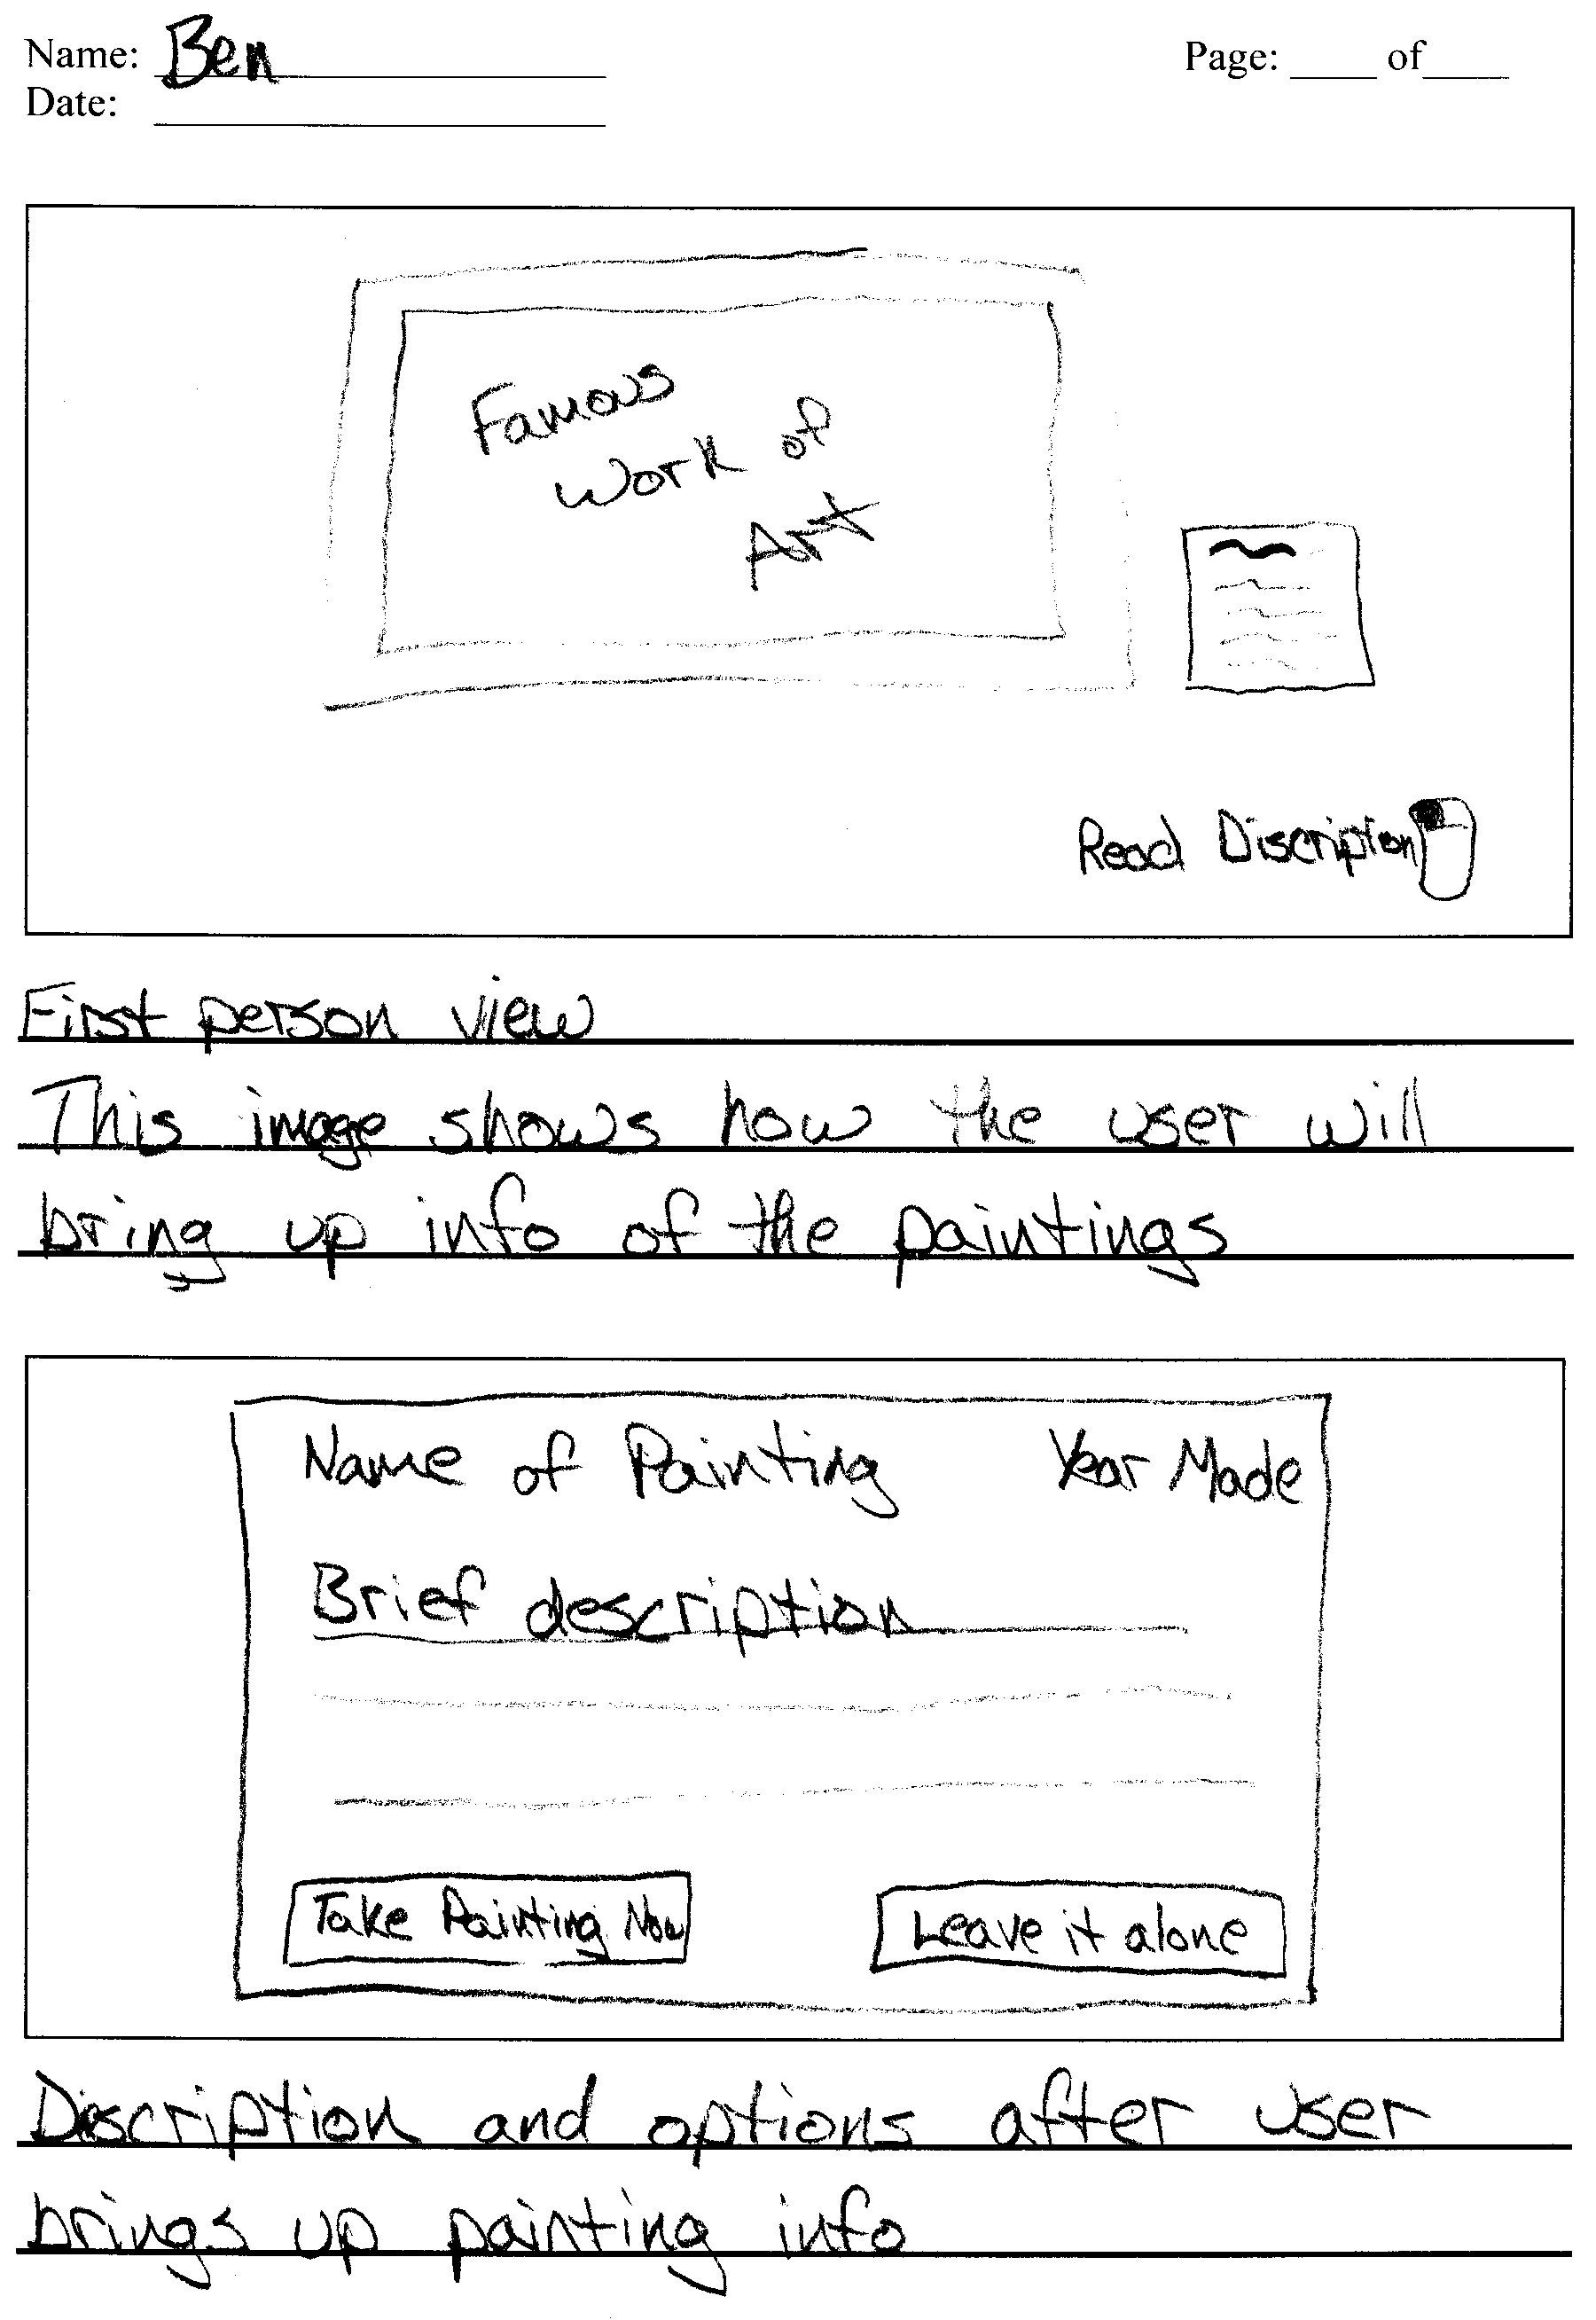 Name: Ben
Page: ____ of____
Date:
Famous
Work of
Art
Read Discription
First person view
This image shows how the user will
bring up info of the paintings
Name of Painting Year Made
Brief description
Take Painting Now
Leave it alone
Discription and options after user
brings up painting info